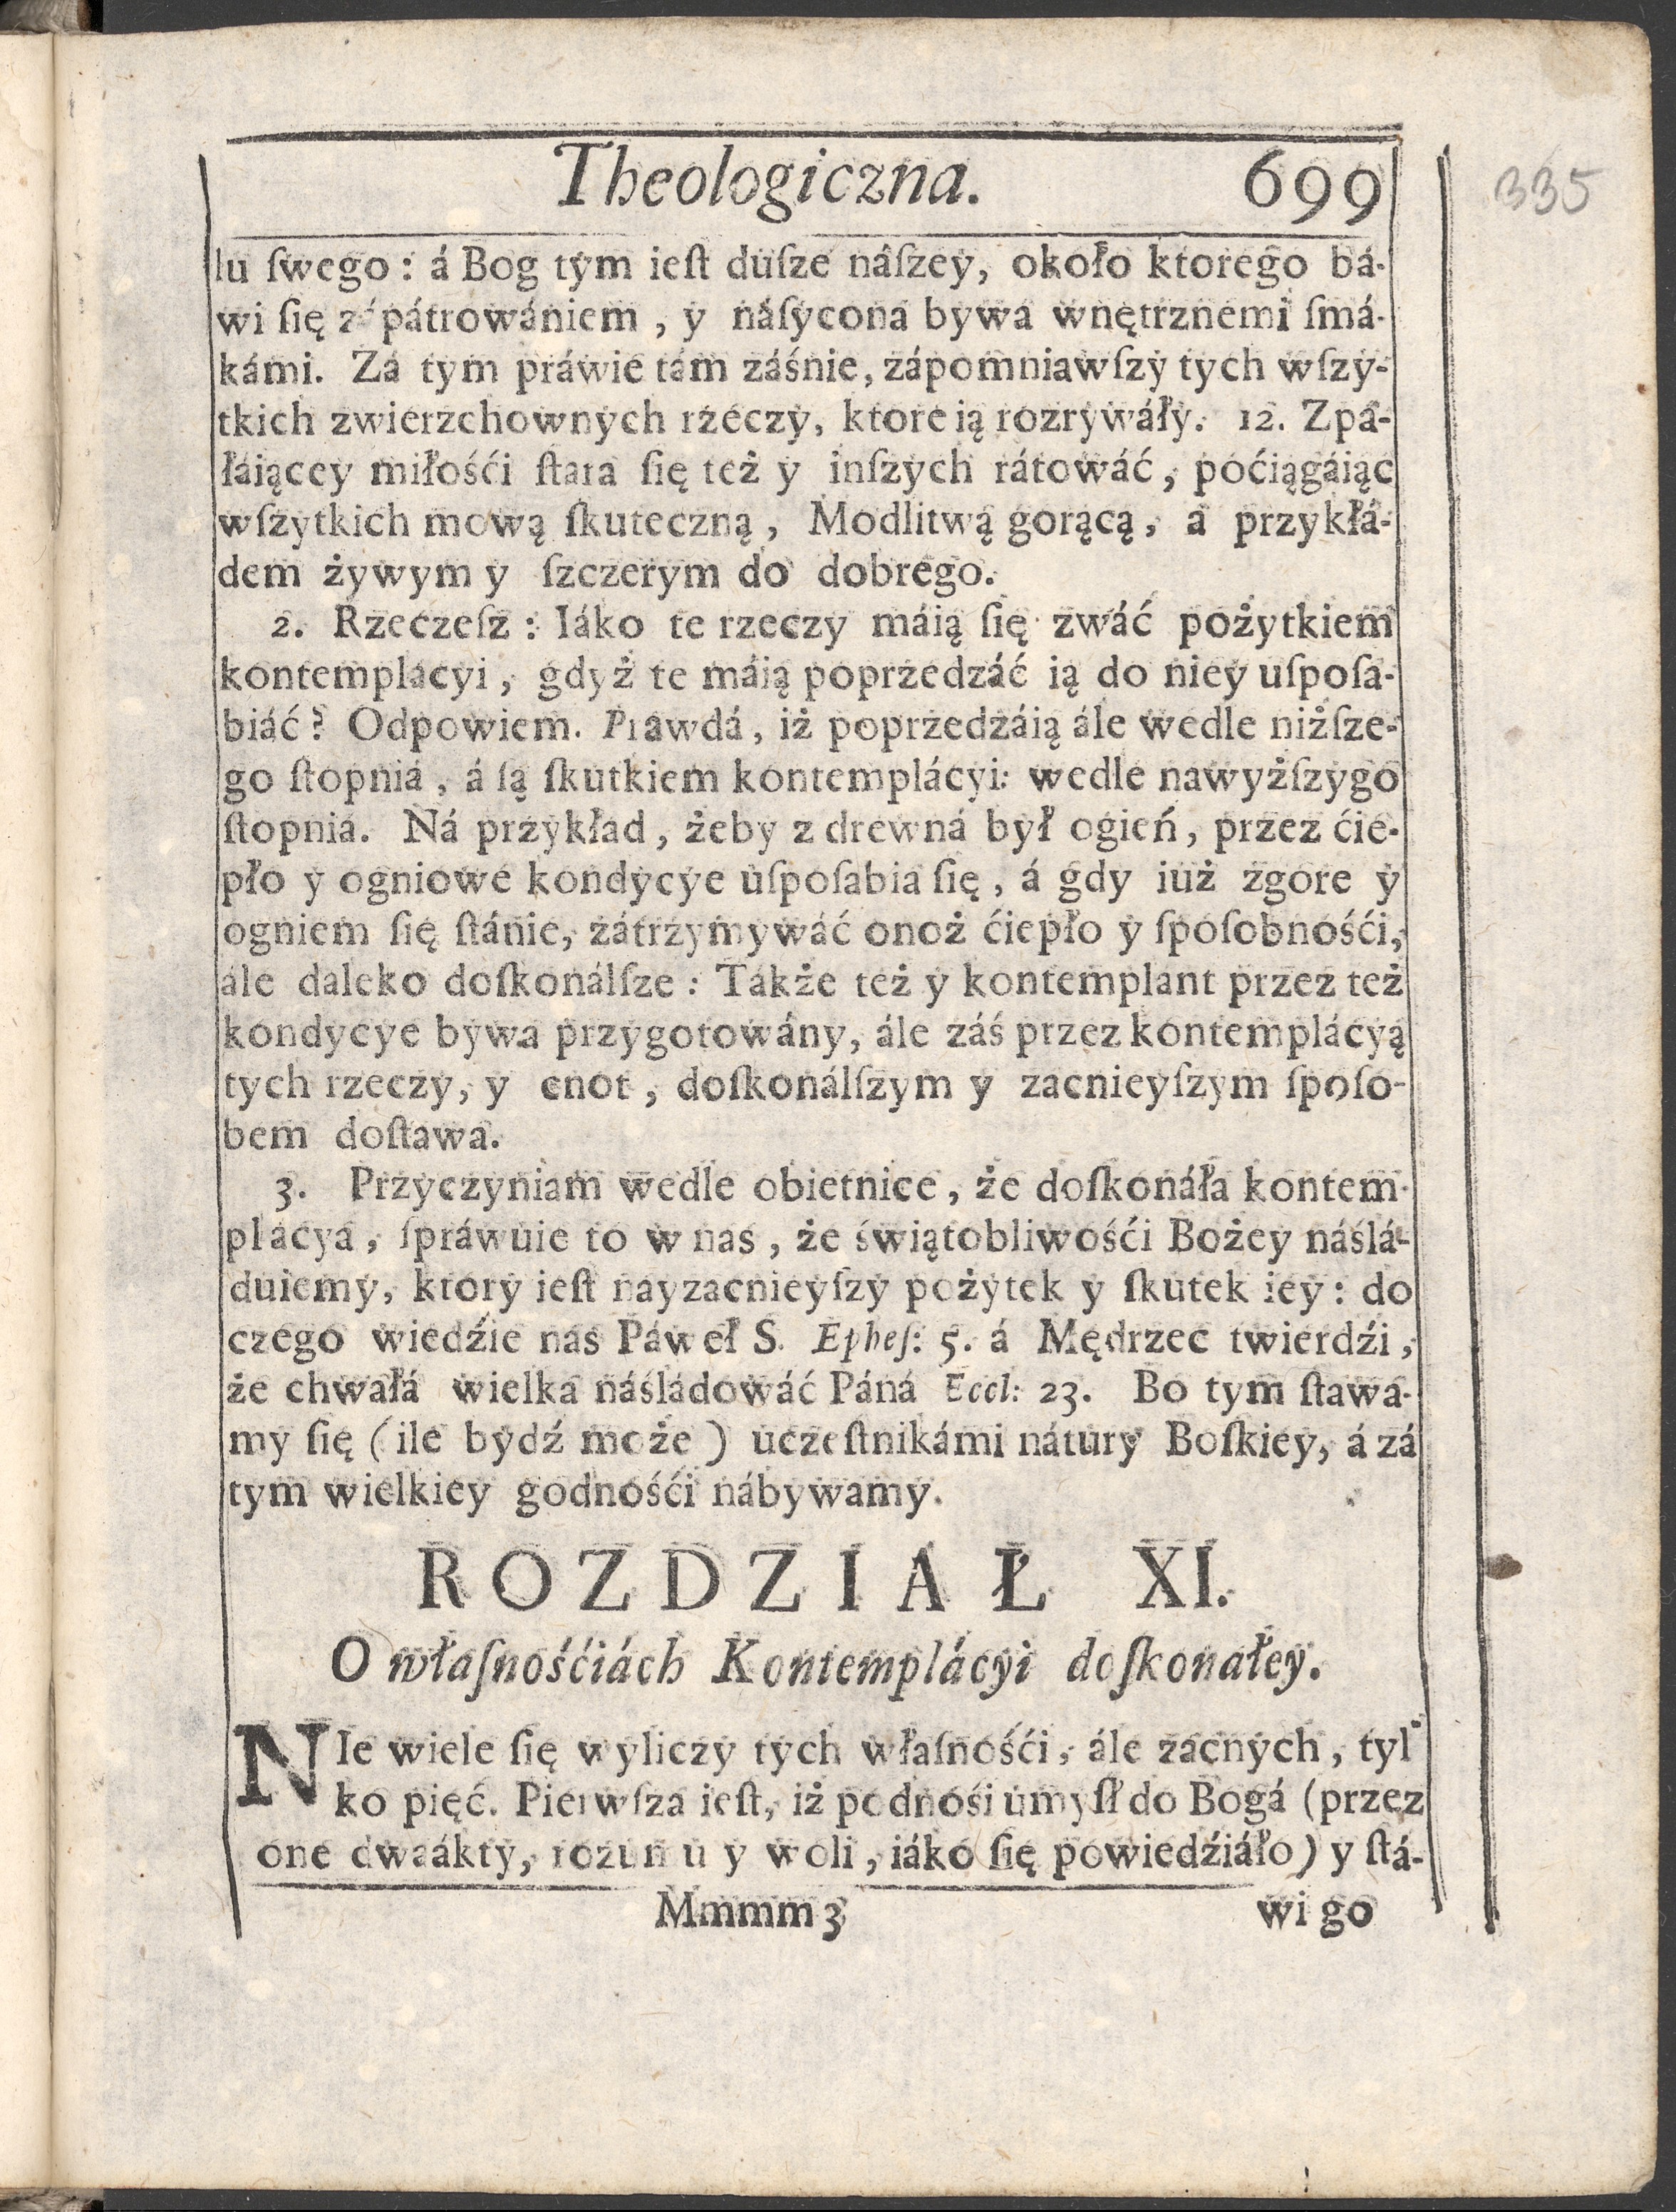 Theologiczna. 699
335
lu ſwego: á Bog tym ieſt duſze náſzey, około ktorego bá-
wi ſię zápátrowániem, y náſycona bywa wnętrznemi ſmá-
kámi. Zá tym práwie tám záśnie, zápomniawſzy tych wſzy-
tkich zwierzchownych rzeczy, ktore ią rozrywáły. 12. Zpa-
łáiącey miłośći ſtara ſię też y inſzych rátowáć, poćiągáiąc
wſzytkich mową ſkuteczną, Modlitwą gorącą, a przykłá-
dem żywym y ſzczerym do dobrego.
2. Rzeczeſz: Iáko te rzeczy máią ſię zwáć pożytkiem
kontemplácyi, gdyż te máią poprzedzáć ią do niey uſpoſa-
biáć? Odpowiem. Prawdá, iż poprzedzáią ále wedle niżſze-
go ſtopniá, á ſą ſkutkiem kontemplácyi: wedle nawyżſzygo
ſtopniá. Ná przykład, żeby z drewná był ogień, przez ćie-
pło y ogniowe kondycye uſpoſabia ſię, á gdy iuż zgore y
ogniem ſię ſtánie, zátrzymywáć onoż ćiepło y ſpoſobnośći,
ále daleko doſkonálſze: Tákże też y kontemplant przez też
kondycye bywa przygotowány, ále záś przez kontemplácyą
tych rzeczy, y cnot, doſkonálſzym y zacnieyſzym ſpoſo-
bem doſtawa.
3. Przyczyniam wedle obietnice, że doſkonáła kontem-
placya, ſpráwuie to w nas, że świątobliwośći Bożey náślá-
duiemy, ktory ieſt nayzacnieyſzy pożytek y ſkutek iey: do
czego wiedźie nas Páweł S. Epheſ: 5. á Mędrzec twierdźi,
że chwałá wielka náśládowáć Páná Eccl: 23. Bo tym ſtawa-
my ſię (ile bydź może) uczeſtnikámi nátury Boſkiey, á zá
tym wielkiey godnośći nábywamy.
ROZDZIAŁ XI.
O właſnośćiách Kontemplácyi doſkonałey.
NIe wiele ſię wyliczy tych właſnośći, ále zacnych, tyl-
ko pięć. Pierwſza ieſt, iż podnośi umyſł do Bogá (przez
one dwaákty, rozumu y woli, iáko ſię powiedźiáło) y ſtá-
Mmmm 3 wi go